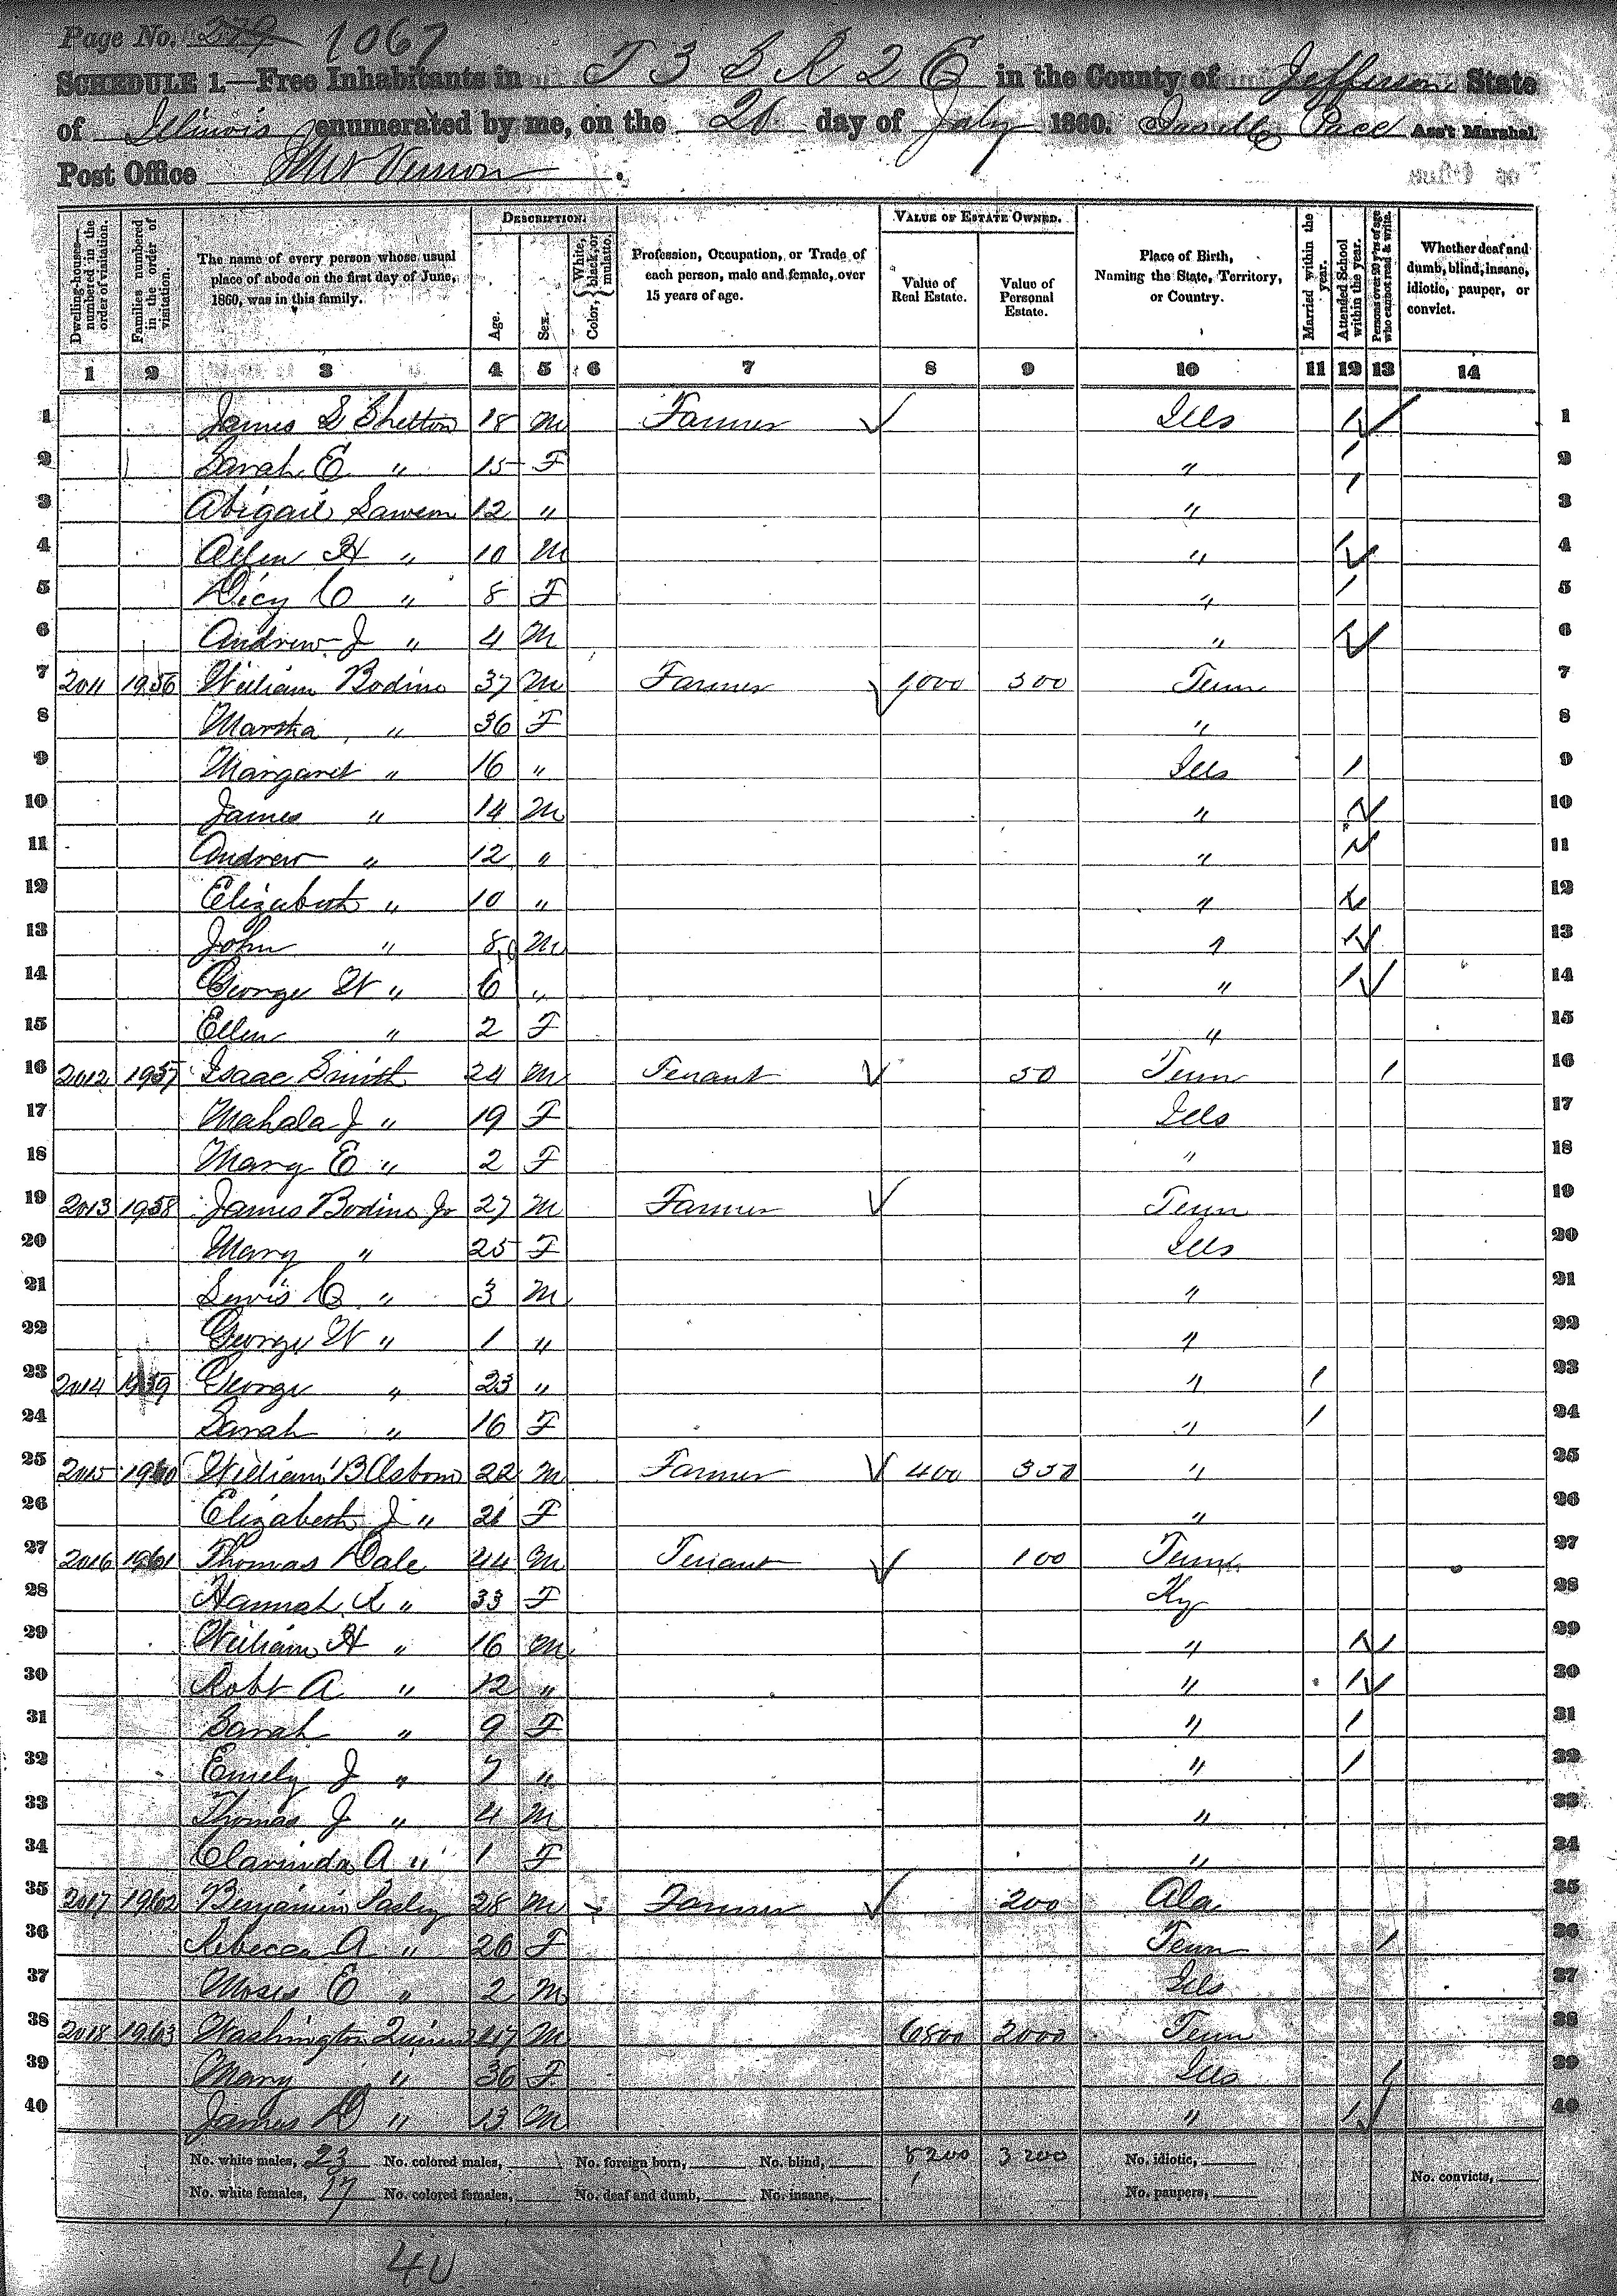 Page No. 279 1067
SCHEDULE 1.—Free Inhabitants in T 3 S R 2 E in the County of Jefferson State
of Illinois enumerated by me, on the 20 day of July 1860. Pace Ass't Marshal.
Post Office Mt Vernon.
Dwelling-houses—numbered in the order of visitation. Families numbered in the order of visitation. The name of every person whose usual place of abode on the first day of June, 1860, was in this family. DESCRIPTION. Age. Sex. Color, { White, black, or mulatto. Profession, Occupation, or Trade of each person, male and female, over 15 years of age. VALUE OF ESTATE OWNED. Value of Real Estate. Value of Personal Estate. Place of Birth, Naming the State, Territory, or Country. Married within the year. Attended School within the year. Persons over 20 y'rs of age who cannot read & write. Whether deaf and dumb, blind, insane, idiotic, pauper, or convict.
1 2 3 4 5 6 7 8 9 10 11 12 13 14
1 James S Shelton 18 M Farmer Ills / 1
2 Sarah E " 15 F " / 2
3 Abigail 12 " " / 3
4 Allen H " 10 M " / 4
5 Dicy C " 8 F " / 5
6 Andrew J " 4 M " / 6
7 2011 1956 William Bodine 37 M Farmer 1000 300 Tenn 7
8 Martha " 36 F " 8
9 Margaret " 16 " Ills / 9
10 James " 14 M " / 10
11 Andrew " 12 " " / 11
12 Elizabeth " 10 " " / 12
13 John " 8 M " / 13
14 George W " 6 " " / 14
15 Ellen " 2 F " 15
16 2012 1957 Isaac Smith 24 M Tenant 50 Tenn / 16
17 Mahala J " 19 F Ills 17
18 Mary E " 2 F " 18
19 2013 1958 James Bodine Jr 27 M Farmer Tenn 19
20 Mary " 25 F Ills 20
21 Lewis C " 3 M " 21
22 George W " 1 " " 22
23 2014 1959 George " 23 " " / 23
24 Sarah " 16 F " / 24
25 2015 1960 William B Osborn 22 M Farmer 400 350 " 25
26 Elizabeth J " 21 F " 26
27 2016 1961 Thomas Dale 44 M Tenant 100 Tenn 27
28 Hannah K " 33 F Ky 28
29 William H " 16 M " / 29
30 Robt A " 12 " " / 30
31 Sarah " 9 F " / 31
32 Emely J " 7 " " / 32
33 Thomas J " 4 M " 33
34 Clarinda A " 1 F " 34
35 2017 1962 Benjamin 28 M Farmer 200 Ala 35
36 Rebecca A " 26 F Tenn / 36
37 Moses E " 2 M Ills 37
38 2018 1963 Washington Quinn 47 M 6800 2000 Tenn 38
39 Mary " 36 F Ills / 39
40 James D " 13 M " / 40
No. white males, 23 No. colored males, No. foreign born, No. blind, 8200 3200 No. idiotic, No. convicts,
No. white females, 17 No. colored females, No. deaf and dumb, No. insane, No. paupers,
40